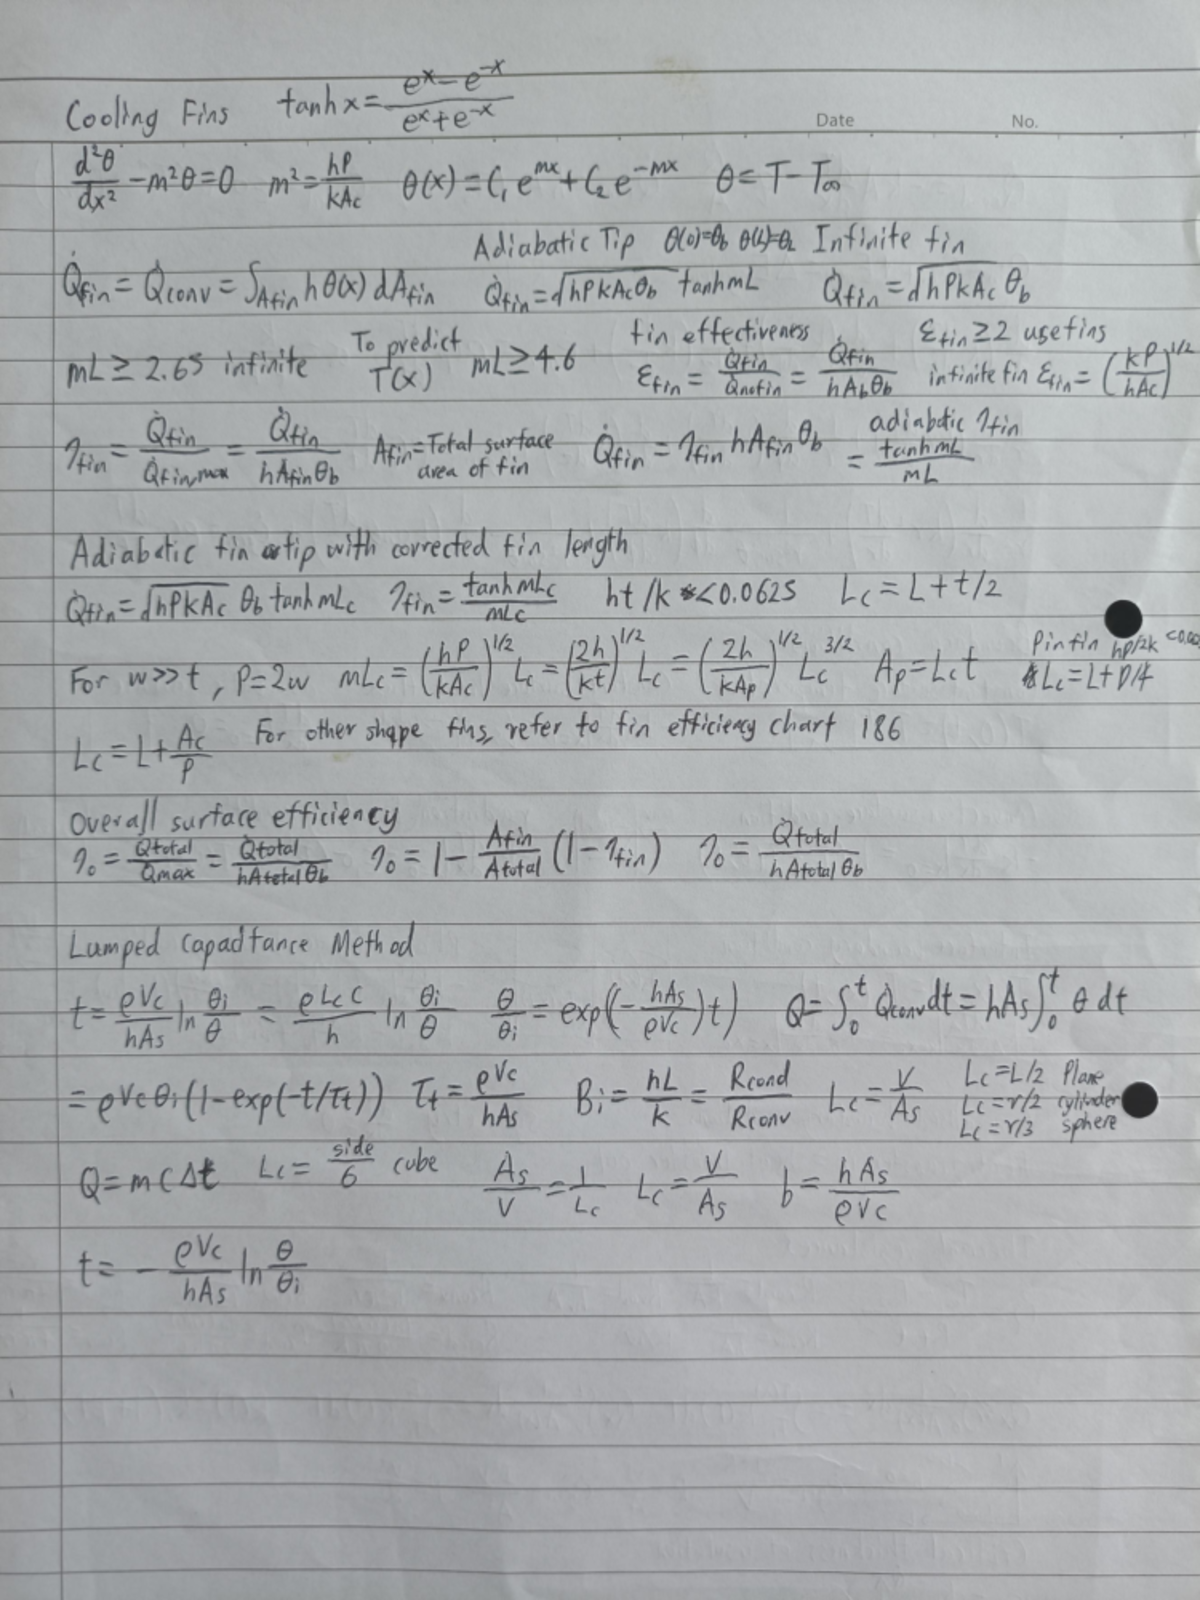 Cooling Fins tanh x = (eˣ − e⁻ˣ)/(eˣ + e⁻ˣ)
Date No.
d²θ/dx² − m²θ = 0 m² = hP/kAc θ(x) = C₁e^mx + C₂e^−mx θ = T − T∞
Adiabatic Tip θ(0)=θb θ(L)=θL Infinite fin
Q̇fin = Q̇conv = ∫Afin hθ(x) dAfin Q̇fin = √(hPkAcθb) tanh mL Q̇fin = √(hPkAc) θb
mL ≥ 2.65 infinite To predict T(x) mL ≥ 4.6 fin effectiveness εfin = Q̇fin/Q̇nofin = Q̇fin/hAbθb εfin ≥ 2 use fins infinite fin εfin = (kP/hAc)^1/2
ηfin = Q̇fin/Q̇fin,max = Q̇fin/hAfinθb Afin = Total surface area of fin Q̇fin = ηfin hAfin θb adiabatic ηfin = tanh mL/mL
Adiabatic fin tip with corrected fin length
Q̇fin = √(hPkAc) θb tanh mLc ηfin = tanh mLc/mLc ht/k < 0.0625 Lc = L + t/2
For w >> t, P = 2w mLc = (hP/kAc)^1/2 Lc = (2h/kt)^1/2 Lc = (2h/kAp)^1/2 Lc^3/2 Ap = Lc t Pin fin hD/2k Lc = L + D/4
Lc = L + Ac/P For other shape fins, refer to fin efficiency chart 186
Overall surface efficiency
η₀ = Q̇total/Q̇max = Q̇total/hAtotal θb η₀ = 1 − Afin/Atotal (1 − ηfin) η₀ = Q̇total/hAtotal θb
Lumped Capacitance Method
t = ρVc/hAs ln θi/θ = ρLc C/h ln θi/θ θ/θi = exp(−(hAs/ρVc)t) Q = ∫₀ᵗ Q̇conv dt = hAs ∫₀ᵗ θ dt
= ρVcθi(1 − exp(−t/τt)) τt = ρVc/hAs Bi = hL/k = Rcond/Rconv Lc = V/As Lc = L/2 Plane Lc = r/2 cylinder Lc = r/3 sphere
Q = mcΔt Lc = side/6 cube As/V = 1/Lc Lc = V/As b = hAs/ρVc
t = − ρVc/hAs ln θ/θi